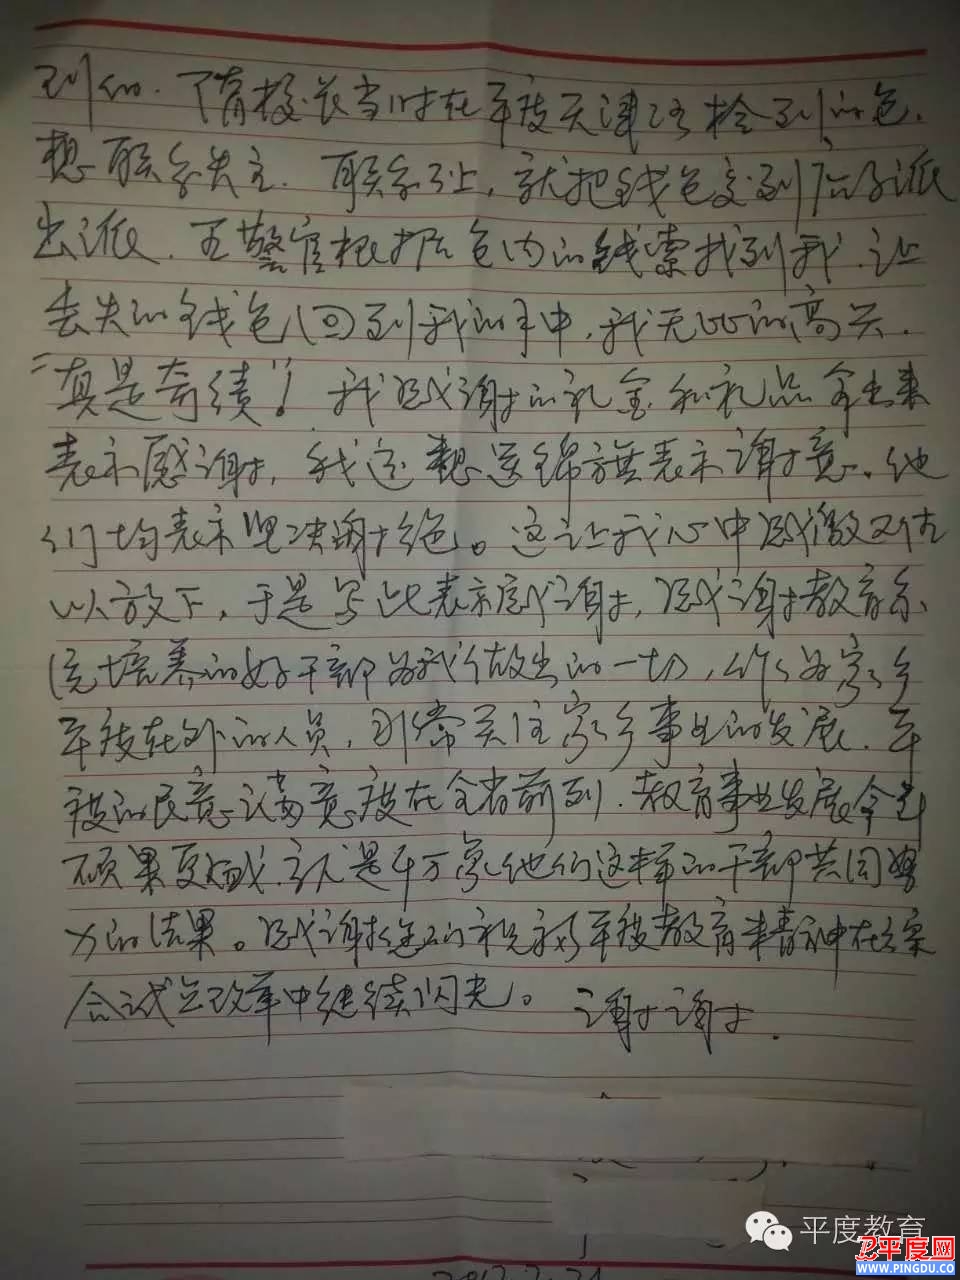 到的。隋校长当时在平度天津路捡到的包,
想联系失主.联系不上,就把钱包交到店子派
出派.王警官根据包内的线索找到我.让
丢失的钱包回到我的手中,我无比的高兴.
"真是奇绩"!我感谢的礼金和礼品拿出来
表示感谢,我还想送锦旗表示谢意.他
们均表示坚决谢绝。这让我心中感激
以放下,于是写此表示感谢,感谢教育系
统培养的好干部为我做出的一切,作为家乡
平度在外的人员,非常关注家乡事业的发展.平
度的民意满意度在全省前列.教育事业发展
硕果更是千万像他们这样的干部共同努
力的结果。感谢您们祝福平度教育精神在综
合试点改革中继续闪光。谢谢.
平度教育
平度网
WWW.PINGDU.CO